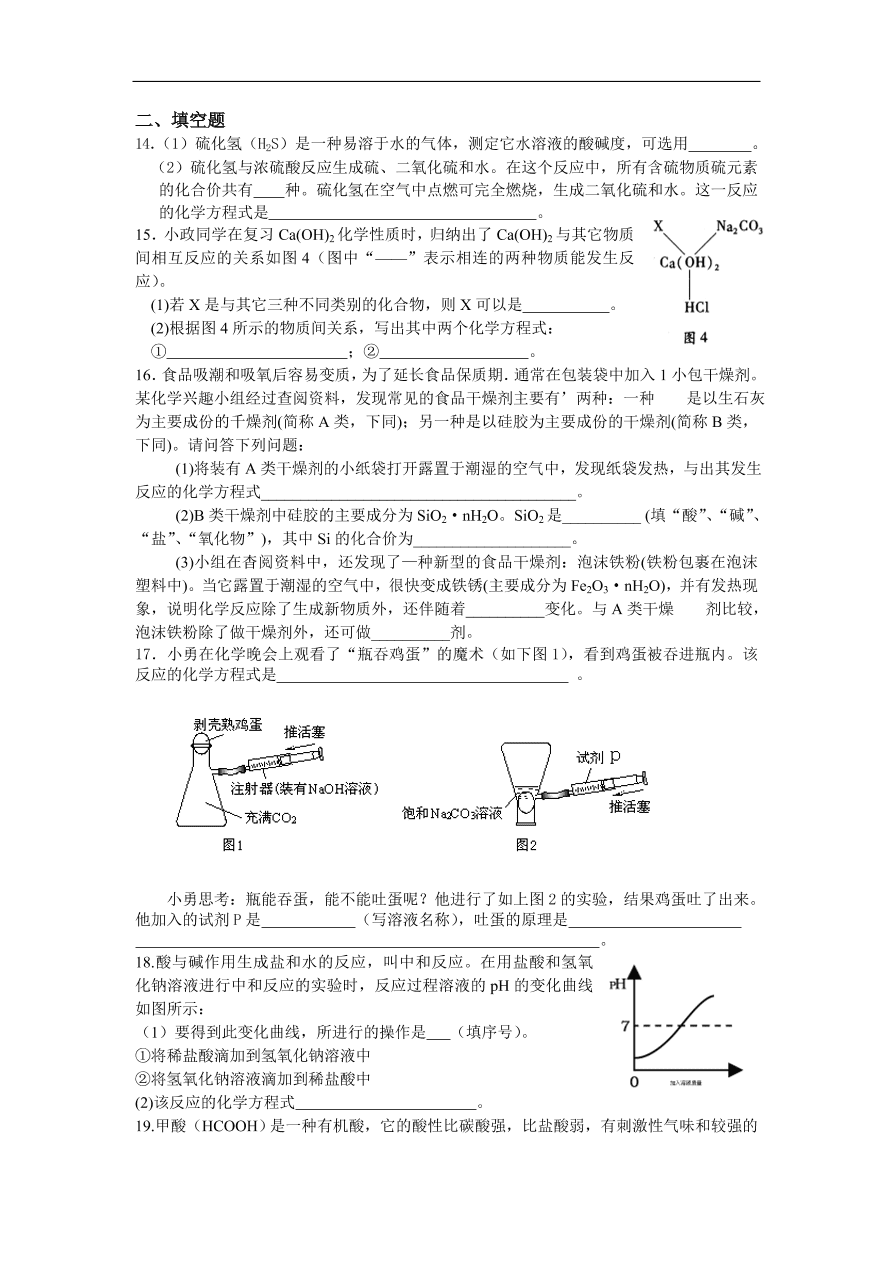 二、填空题
14.（1）硫化氢（H₂S）是一种易溶于水的气体，测定它水溶液的酸碱度，可选用________。
（2）硫化氢与浓硫酸反应生成硫、二氧化硫和水。在这个反应中，所有含硫物质硫元素
的化合价共有____种。硫化氢在空气中点燃可完全燃烧，生成二氧化硫和水。这一反应
的化学方程式是__________________________________。
15．小政同学在复习 Ca(OH)₂ 化学性质时，归纳出了 Ca(OH)₂ 与其它物质
间相互反应的关系如图 4（图中“——”表示相连的两种物质能发生反
应）。
(1)若 X 是与其它三种不同类别的化合物，则 X 可以是___________。
(2)根据图 4 所示的物质间关系，写出其中两个化学方程式：
①_______________________；②___________________。
X
Na₂CO₃
Ca(OH)₂
HCl
图 4
16．食品吸潮和吸氧后容易变质，为了延长食品保质期．通常在包装袋中加入 1 小包干燥剂。
某化学兴趣小组经过查阅资料，发现常见的食品干燥剂主要有’两种：一种 是以生石灰
为主要成份的千燥剂(简称 A 类，下同)；另一种是以硅胶为主要成份的干燥剂(简称 B 类，
下同)。请问答下列问题：
(1)将装有 A 类干燥剂的小纸袋打开露置于潮湿的空气中，发现纸袋发热，与出其发生
反应的化学方程式________________________________________。
(2)B 类干燥剂中硅胶的主要成分为 SiO₂·nH₂O。SiO₂ 是__________ (填“酸”、“碱”、
“盐”、“氧化物”)，其中 Si 的化合价为____________________。
(3)小组在杳阅资料中，还发现了—种新型的食品干燥剂：泡沫铁粉(铁粉包裹在泡沫
塑料中)。当它露置于潮湿的空气中，很快变成铁锈(主要成分为 Fe₂O₃·nH₂O)，并有发热现
象，说明化学反应除了生成新物质外，还伴随着__________变化。与 A 类干燥 剂比较，
泡沫铁粉除了做干燥剂外，还可做__________剂。
17．小勇在化学晚会上观看了“瓶吞鸡蛋”的魔术（如下图 1），看到鸡蛋被吞进瓶内。该
反应的化学方程式是_____________________________________ 。
剥壳熟鸡蛋
推活塞
注射器(装有NaOH溶液)
充满CO₂
图1
试剂 p
饱和Na₂CO₃溶液
推活塞
图2
小勇思考：瓶能吞蛋，能不能吐蛋呢？他进行了如上图 2 的实验，结果鸡蛋吐了出来。
他加入的试剂 P 是____________（写溶液名称），吐蛋的原理是______________________
___________________________________________________________。
18.酸与碱作用生成盐和水的反应，叫中和反应。在用盐酸和氢氧
化钠溶液进行中和反应的实验时，反应过程溶液的 pH 的变化曲线
如图所示：
（1）要得到此变化曲线，所进行的操作是___（填序号）。
①将稀盐酸滴加到氢氧化钠溶液中
②将氢氧化钠溶液滴加到稀盐酸中
(2)该反应的化学方程式_______________________。
pH
7
0
加入溶液质量
19.甲酸（HCOOH）是一种有机酸，它的酸性比碳酸强，比盐酸弱，有刺激性气味和较强的